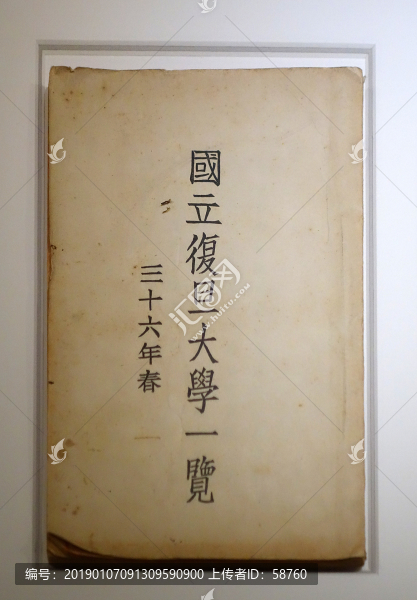 國立復旦大學一覽
三十六年春
编号：20190107091309590900 上传者ID：58760